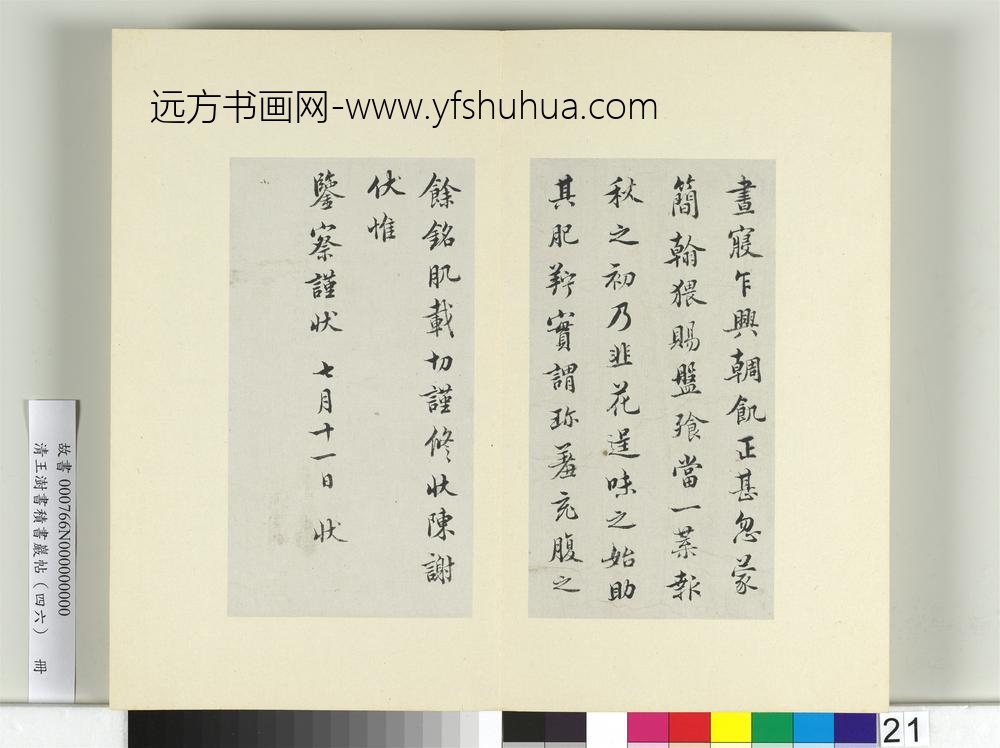 远方书画网-www.yfshuhua.com
晝寢乍興朝飢正甚忽蒙
簡翰猥賜盤飧當一葉報
秋之初乃韭花逞味之始助
其肥羜實謂珎羞充腹之
餘銘肌載切謹修狀陳謝
伏惟
鑒察謹狀 七月十一日 狀
故書 000766N000000000
清王澍書積書巖帖(四六) 冊
21